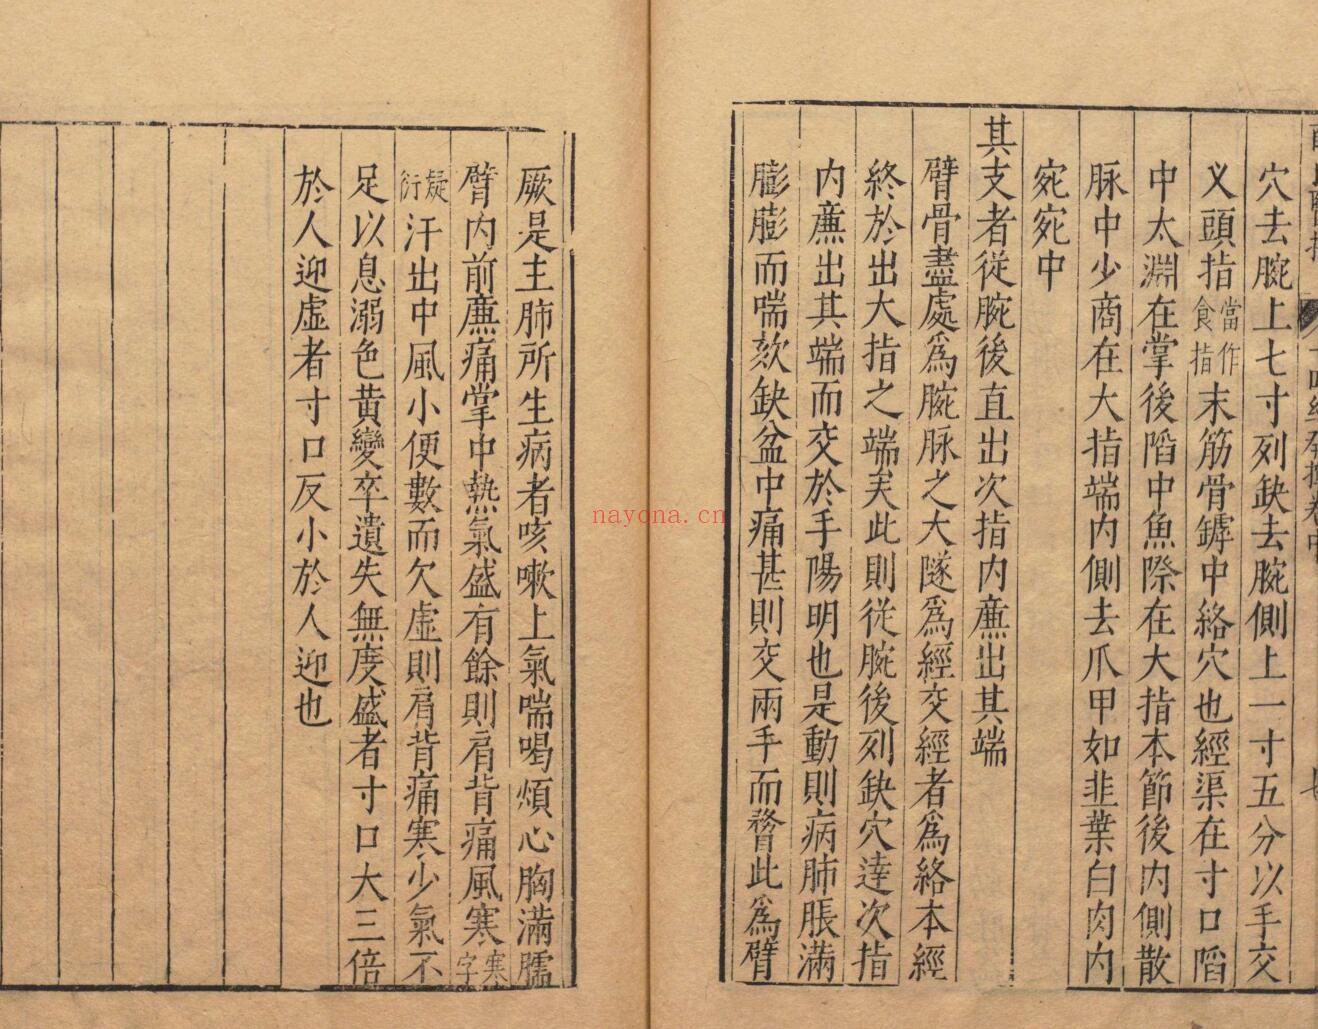 穴去腕上七寸列缺去腕側上一寸五分以手交
义頭指當作食指末筋骨罅中絡穴也經渠在寸口陷
中太淵在掌後陷中魚際在大指本節後內側散
脉中少商在大指端內側去爪甲如韭葉白肉內
宛宛中
其支者從腕後直出次指內廉出其端
臂骨盡處爲腕脉之大隧爲經交經者爲絡本經
終於出大指之端矣此則從腕後列缺穴達次指
內廉出其端而交於手陽明也是動則病肺脹滿
膨膨而喘欬缺盆中痛甚則交兩手而瞀此爲臂
厥是主肺所生病者咳嗽上氣喘喝煩心胸滿臑
臂內前廉痛掌中熱氣盛有餘則肩背痛風寒寒字
疑衍汗出中風小便數而欠虛則肩背痛寒少氣不
足以息溺色黄變卒遺失無度盛者寸口大三倍
於人迎虛者寸口反小於人迎也
nayona.cn